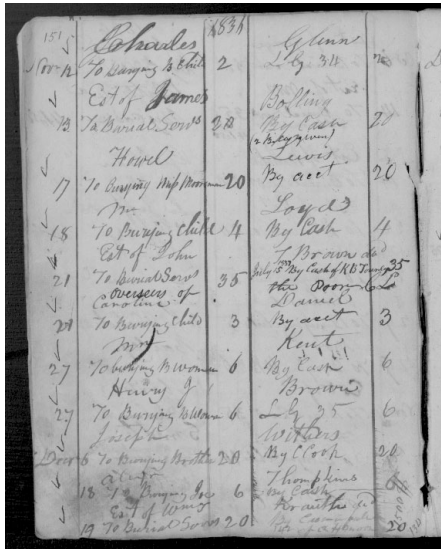 151 1834
Charles Glenn
Nov 12 To Burying B Child 2 L G 34 2
Est of James Bolling
13 To Burial Servs 20 By Cash 20
Howel Lewis
17 To Burying 20 By acct 20
Mr Loyds
18 To Burying Child 4 By Cash 4
Est of John Brown
21 To Burial Servs 35 By Cash of 35
Overseers of the Poor
Caroline Daniel
24 To Burying Child 3 By acct 3
Mr Kent
27 To burying B woman 6 By Cash 6
Henry J Brown
27 To Burying B Woman 6 L G 35 6
Joseph Withers
Decr 6 To Burying Brother 20 By C Cook 20
Thompkins
18 To Burying Joe 6 By Cash 6
Est of Wm
19 To Burial Servs 20 20